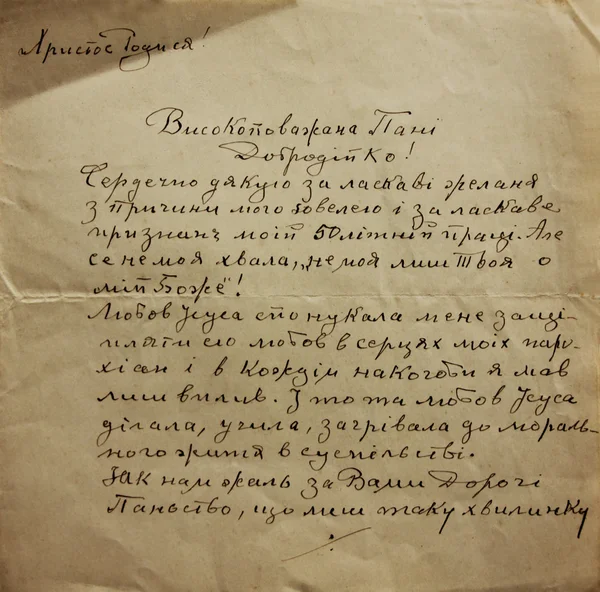 Христос Родися!
Високоповажана Пані
Добродійко!
Сердечно дякую за ласкаві желаня
з причини мого ювелею і за ласкаве
признанє моїй 50літній праці. Але
се не моя хвала, „не моя лиш Твоя о
мій Боже"!
Любов Ісуса спонукала мене защі-
пляти сю любов в серцях моїх паро-
хіан і в кождім на кого би я мав
лиш вплив. І то та любов Ісуса
ділала, учила, загрівала до мораль-
ного житя в суспільстві.
Як нам жаль за Вами Дорогі
Паньство, що лиш таку хвилинку